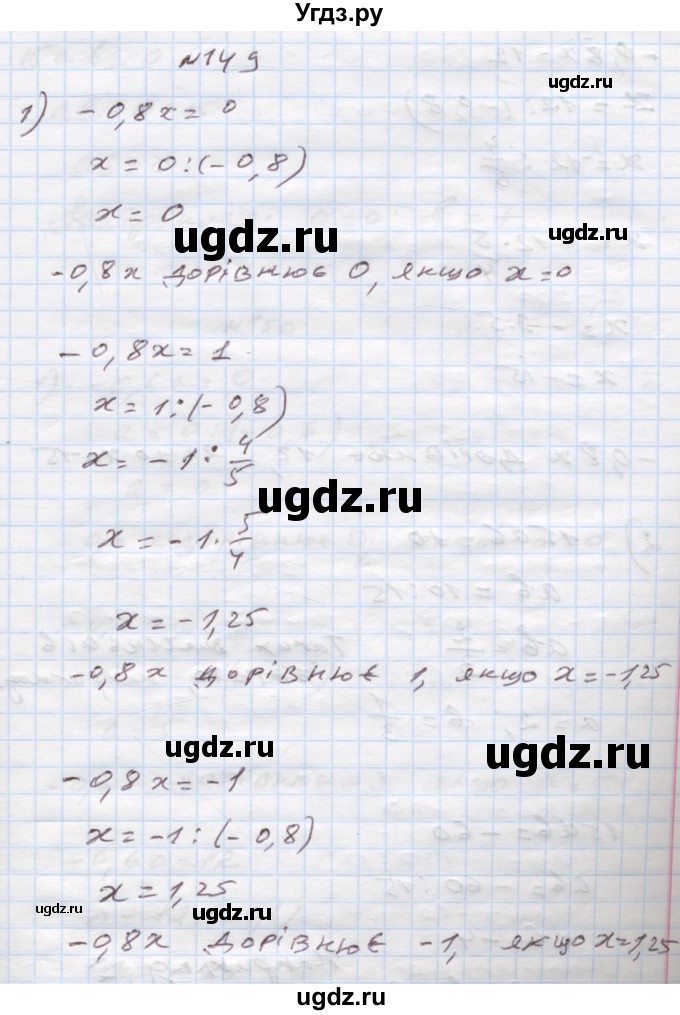 Угдз.ру
№149
ugdz.ru
1) -0,8x = 0
ugdz.ru
x = 0:(-0,8)
x = 0
ugdz.ru
-0,8x дорівнює 0, якщо x=0
-0,8x = 1
x = 1:(-0,8)
x = -1 : 4/5
ugdz.ru
x = -1 · 5/4
x = -1,25
-0,8x дорівнює 1, якщо x=-1,25
ugdz.ru
ugdz.ru
-0,8x = -1
x = -1 : (-0,8)
x = 1,25
ugdz.ru
ugdz.ru
-0,8x дорівнює -1, якщо x=1,25
ugdz.ru